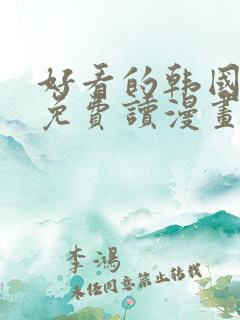 好看的韩国
免費讀漫畫
李鴻
未经同意禁止转载